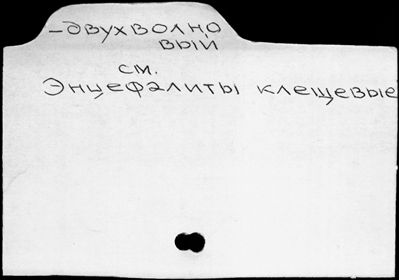 -двухволно
вый
см.
Энцефалиты клещевые